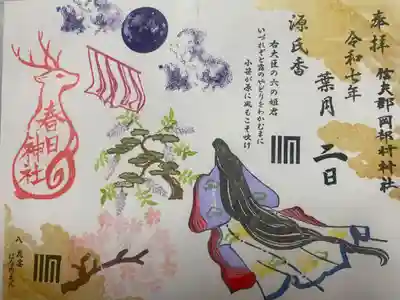 奉拝
令和七年
葉月二日
源氏香
右大臣の六の姫君
いづれぞと露のやどりをわかむまに
小笹が原に風もこそ吹け
春日
神社
八 花宴
はなのえん